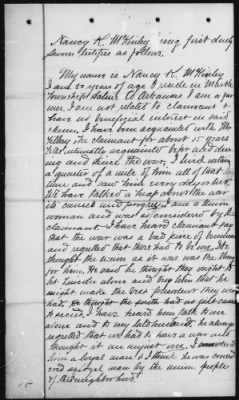 Nancy K. McKinley being first duly
sworn testifies as follows.
My name is Nancy K. McKinley
I am 50 years of age I reside in
Township Saline Co Arkansas I am a
I am not related to claimant &
have no beneficial interest in said
claim. I have been acquainted with Mr
the claimant for about 15 years
I was intimately acquainted before and dur-
ing and since the war. I lived within
a quarter of a mile of him all of that
time and saw him every day or two.
We have talked a heap about the war
its causes and progress I am a Union
woman and was so considered by the
claimant. I have heard claimant say
that the war was a bad piece of business
and regretted that there had to be one. He
thought the union as it was was the thing
for him. He said he thought they ought to
let Lincoln alone and try him that he
might make the best President they ever
had. He thought the south had no just cause
to secede. I have heard him talk to me
alone and to my late husband. he always
regretted that we had to have a war and
thought it an unjust one. I considered
him a loyal man & I think he was consid-
ered as loyal man by the union people
of the neighborhood.
15